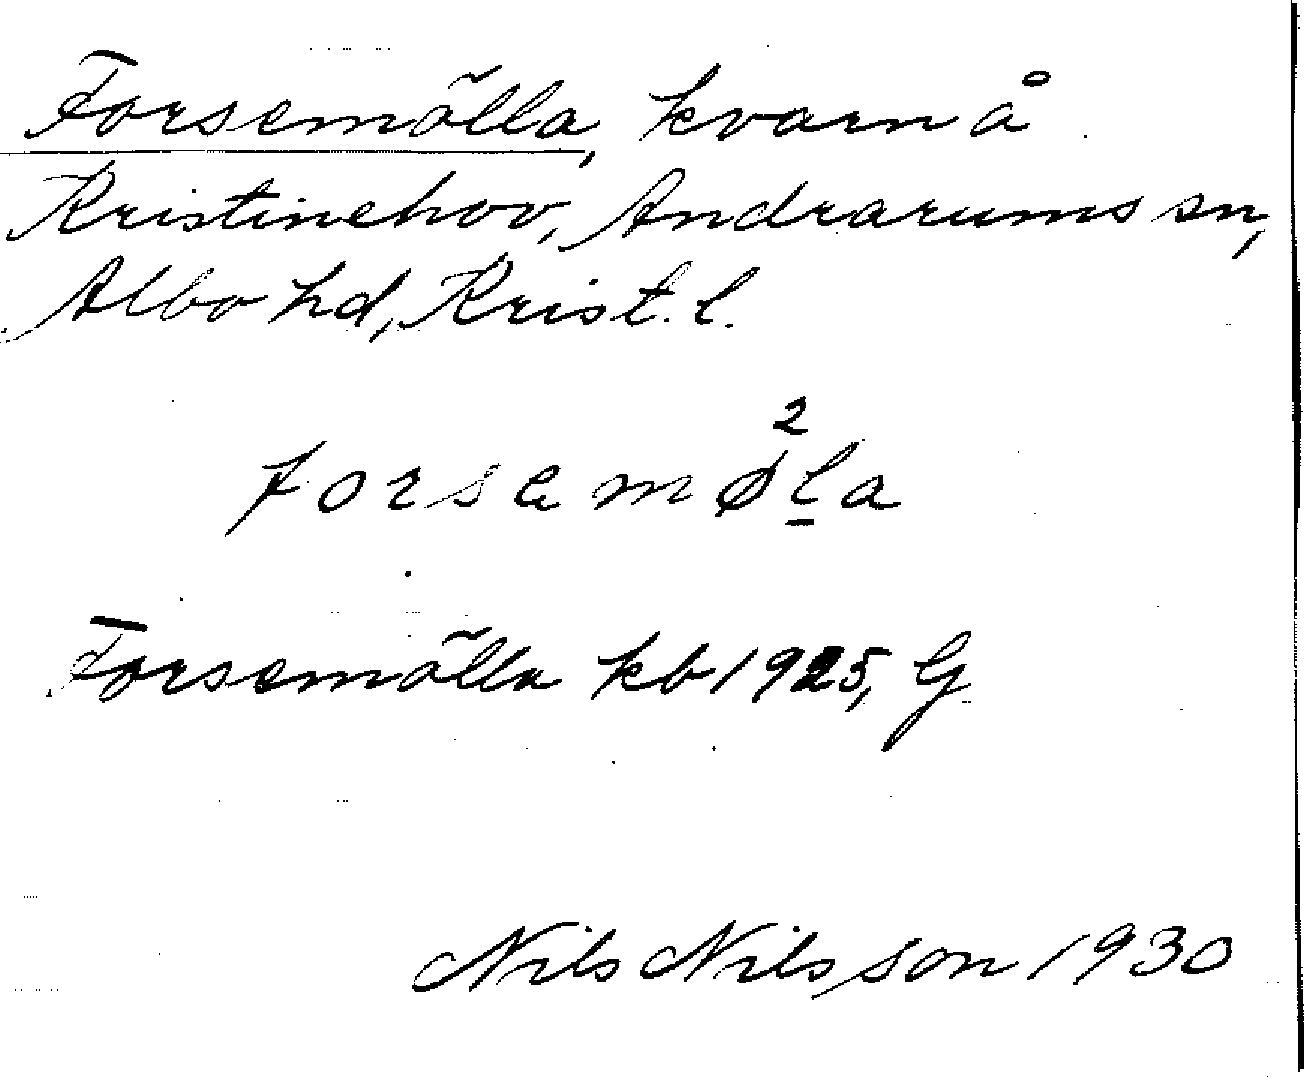 Forsemölla, kvarn å
Kristinehov, Andrarums sn,
Albo hd, Krist. l.
forsamø²l̲a
Forsemölla kb 1925, G
Nils Nilsson 1930